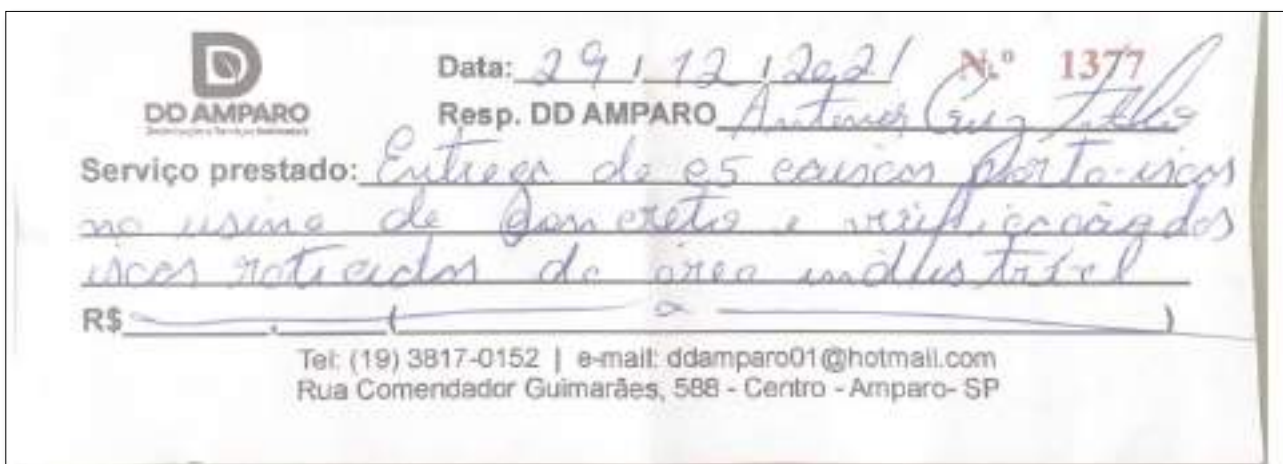 DD AMPARO
Data: 29 / 12 / 2021 N.º 1377
Resp. DD AMPARO Antonio Cruz Filho
Serviço prestado: Entrega de 05 caixas porta-iscas
na usina de concreto e verificação das
iscas roticidas da área industrial
R$ , ( )
Tel: (19) 3817-0152 | e-mail: ddamparo01@hotmail.com
Rua Comendador Guimarães, 588 - Centro - Amparo- SP